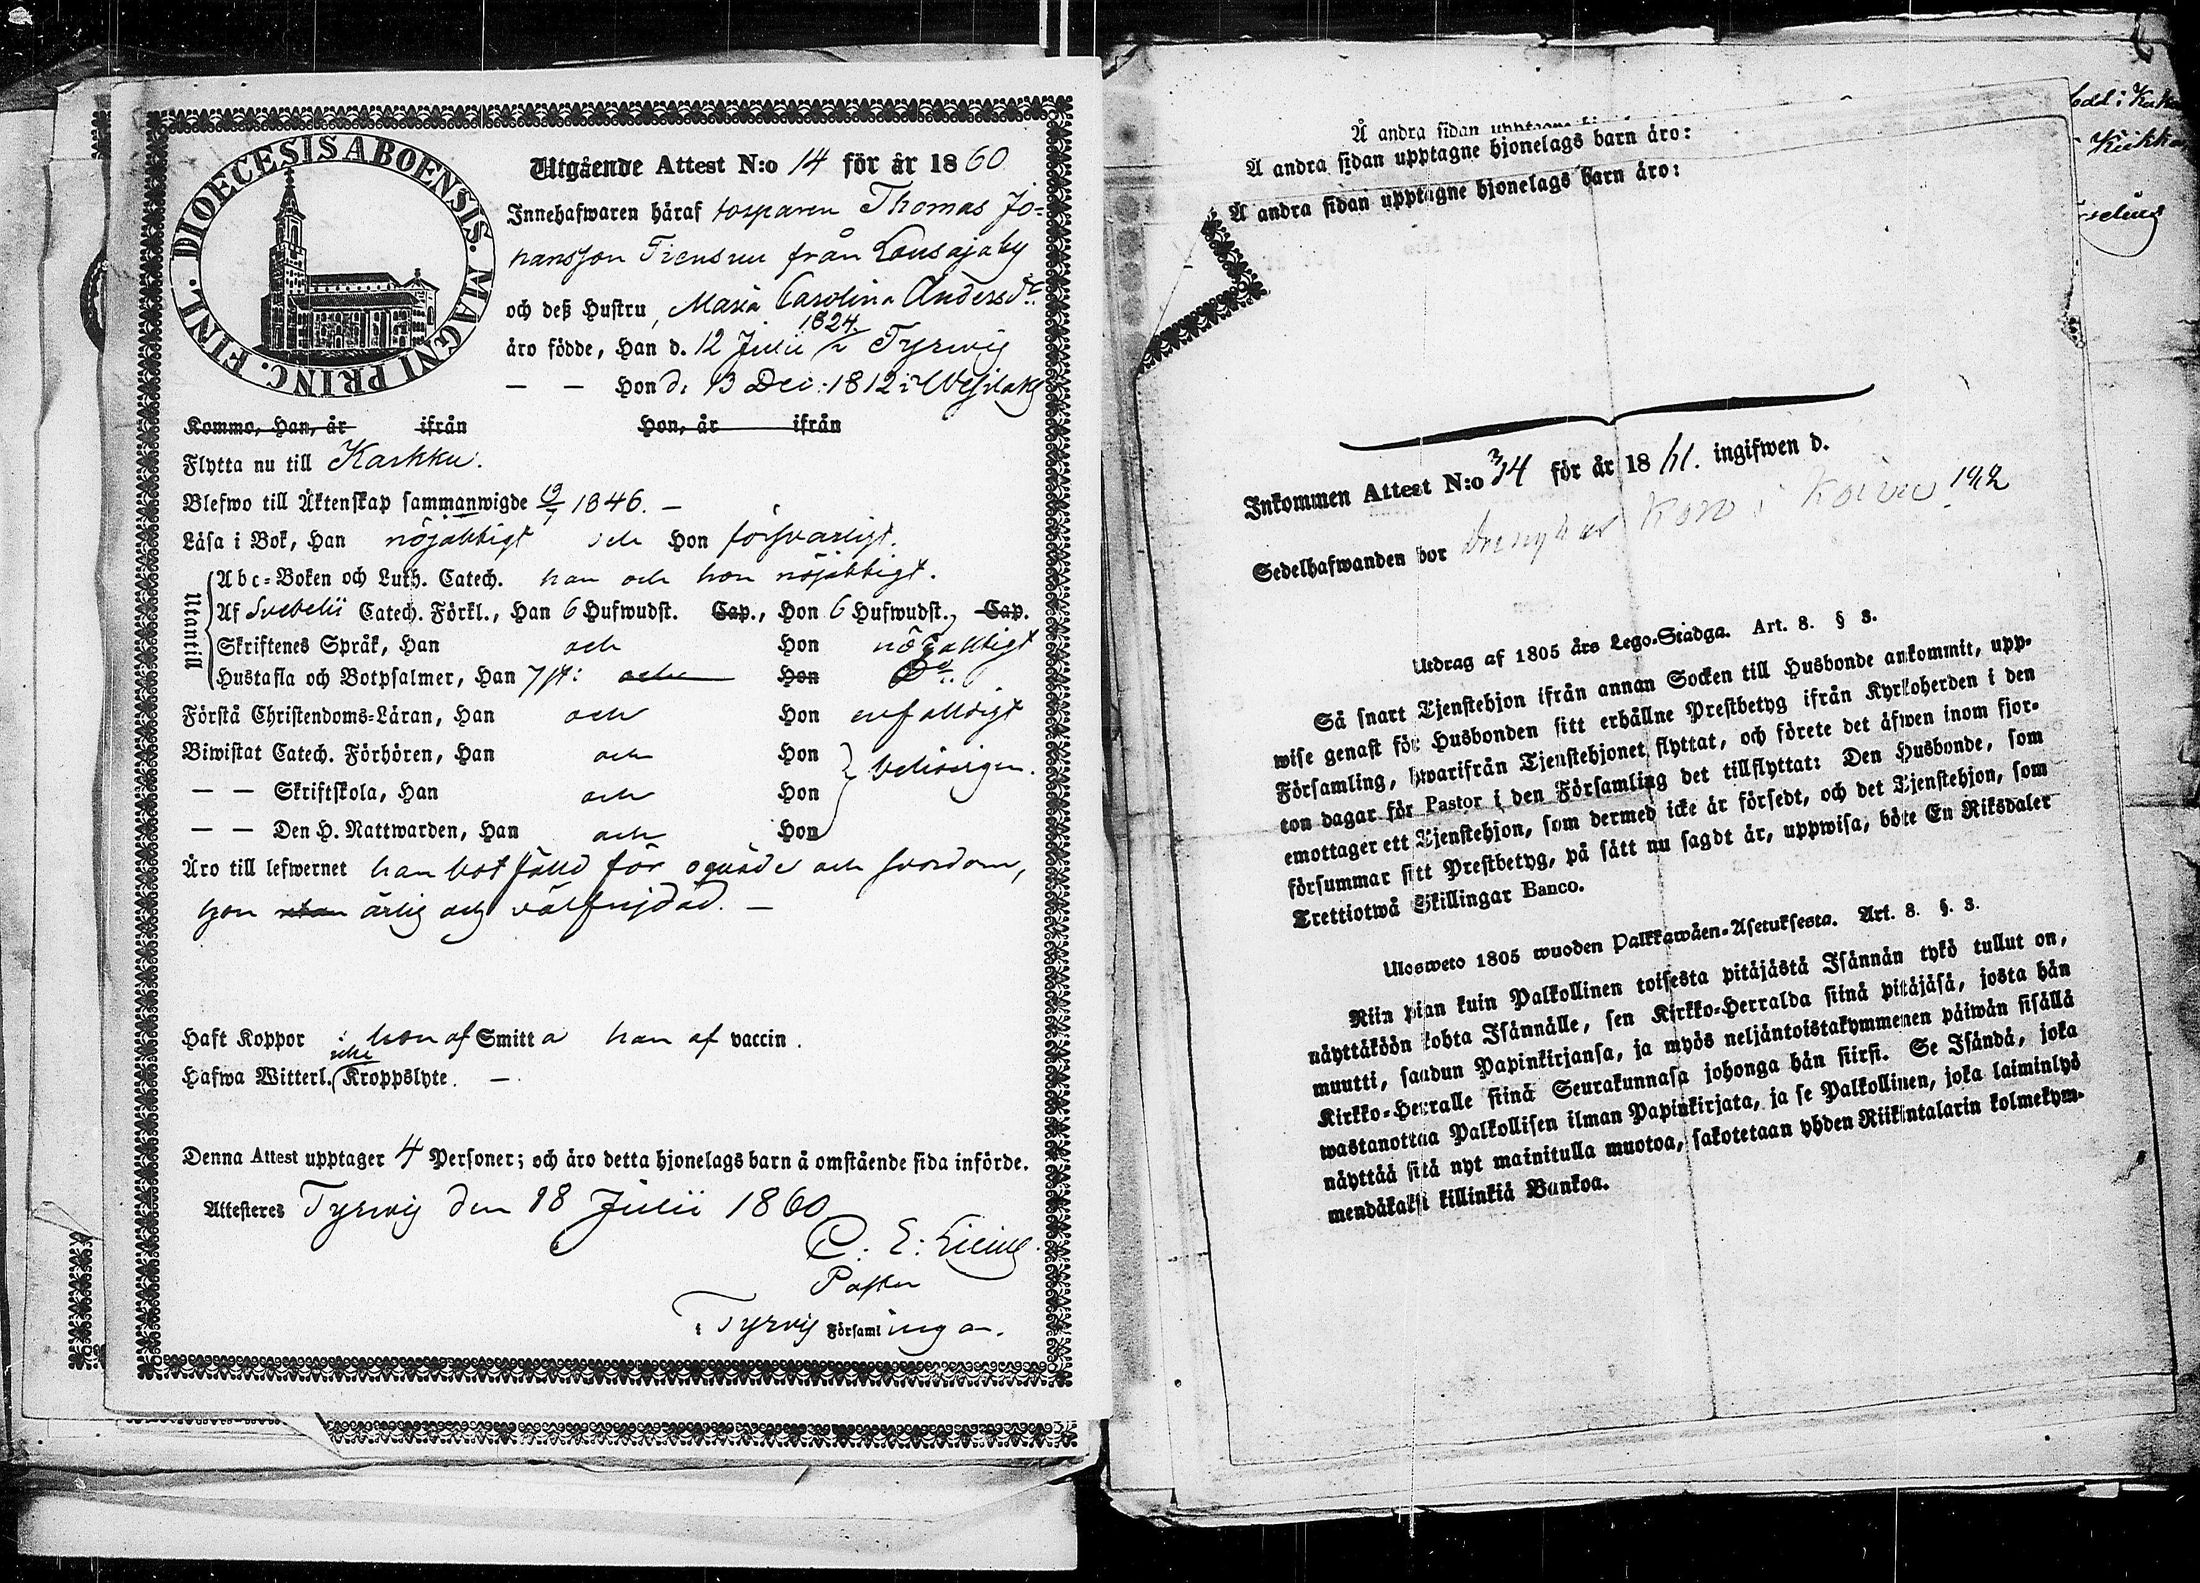 DIOECESIS ABOENSIS. MAGNI PRINC. FINL.
Utgående Attest N:o 14 för år 1860
Innehafwaren häraf torparen Thomas Jo-
hansson Tiensuu från Lousajaby
och deß Hustru, Maria Carolina Andersdr
äro födde, Han d. 12 Julii 1824 i Tyrwis
— — Hon d. 13 Dec: 1812 i Wesilaks
Kommo, Han, år ifrån Hon, år ifrån
Flytta nu till Karkku.
Blefwo till Äktenskap sammanwigde 1846. —
Läsa i Bok, Han nöjaktigt och Hon försvarligt.
Utantill
Abc-Boken och Luth. Catech. han och hon nöjaktigt.
Af Svebelii Catech. Förkl., Han 6 Hufwudst. Cap., Hon 6 Hufwudst., Cap.
Skriftenes Språk, Han och Hon nöjaktigt
Hustafla och Botpsalmer, Han 7 st: och Hon Do
Förstå Christendoms-Läran, Han och Hon enfaldigt
Biwistat Catech. Förhören, Han och Hon
behörigen.
— — Skriftskola, Han och Hon
— — Den H. Nattwarden, Han och Hon
Äro till lefwernet han botfälld för oquäde och svordom,
hon ärlig och välfrejdad. —
Haft Koppor : hon af Smitta han af vaccin.
Hafwa Witterl. icke Kroppslyte. —
Denna Attest upptager 4 Personer; och äro detta hjonelags barn å omstående sida införde.
Attesteres Tyrwis den 18 Julii 1860
C: E:
Pastor
i Tyrvis Församlingen.
Å andra sidan upptagne
Å andra sidan upptagne hjonelags barn äro:
Å andra sidan upptagne hjonelags barn äro:
Inkommen Attest N:o 34 för år 1861. ingifwen d.
Sedelhafwanden bor
Utdrag af 1805 års Lego-Stadga. Art. 8. § 3.
Så snart Tjenstehjon ifrån annan Socken till Husbonde ankommit, upp-
wise genast för Husbonden sitt erhållne Prestbetyg ifrån Kyrkoherden i den
Församling, hwarifrån Tjenstehjonet flyttat, och förete det äfwen inom fjor-
ton dagar för Pastor i den Församling det tillflyttat: Den Husbonde, som
emottager ett Tjenstehjon, som dermed icke är försedt, och det Tjenstehjon, som
försummar sitt Prestbetyg, på sätt nu sagdt är, uppwisa, böte En Riksdaler
Trettiotwå Skillingar Banco.
Ulosweto 1805 wuoden Palkkawäen-Asetuksesta. Art. 8. §. 3.
Niin pian kuin Palkollinen toisesta pitäjästä Isännän tykö tullut on,
näyttäköön kohta Isännälle, sen Kirkko-Herralda siinä pitäjäsä, josta hän
muutti, saadun Papinkirjansa, ja myös neljäntoistakymmenen päiwän sisällä
Kirkko-Herralle siinä Seurakunnasa johonga hän siirsi. Se Isändä, joka
wastanottaa Palkollisen ilman Papinkirjata, ja se Palkollinen, joka laiminlyö
näyttää sitä nyt mainitulla muotoa, sakotetaan yhden Riikintalarin kolmekym-
mendäkaksi killinkiä Bankoa.